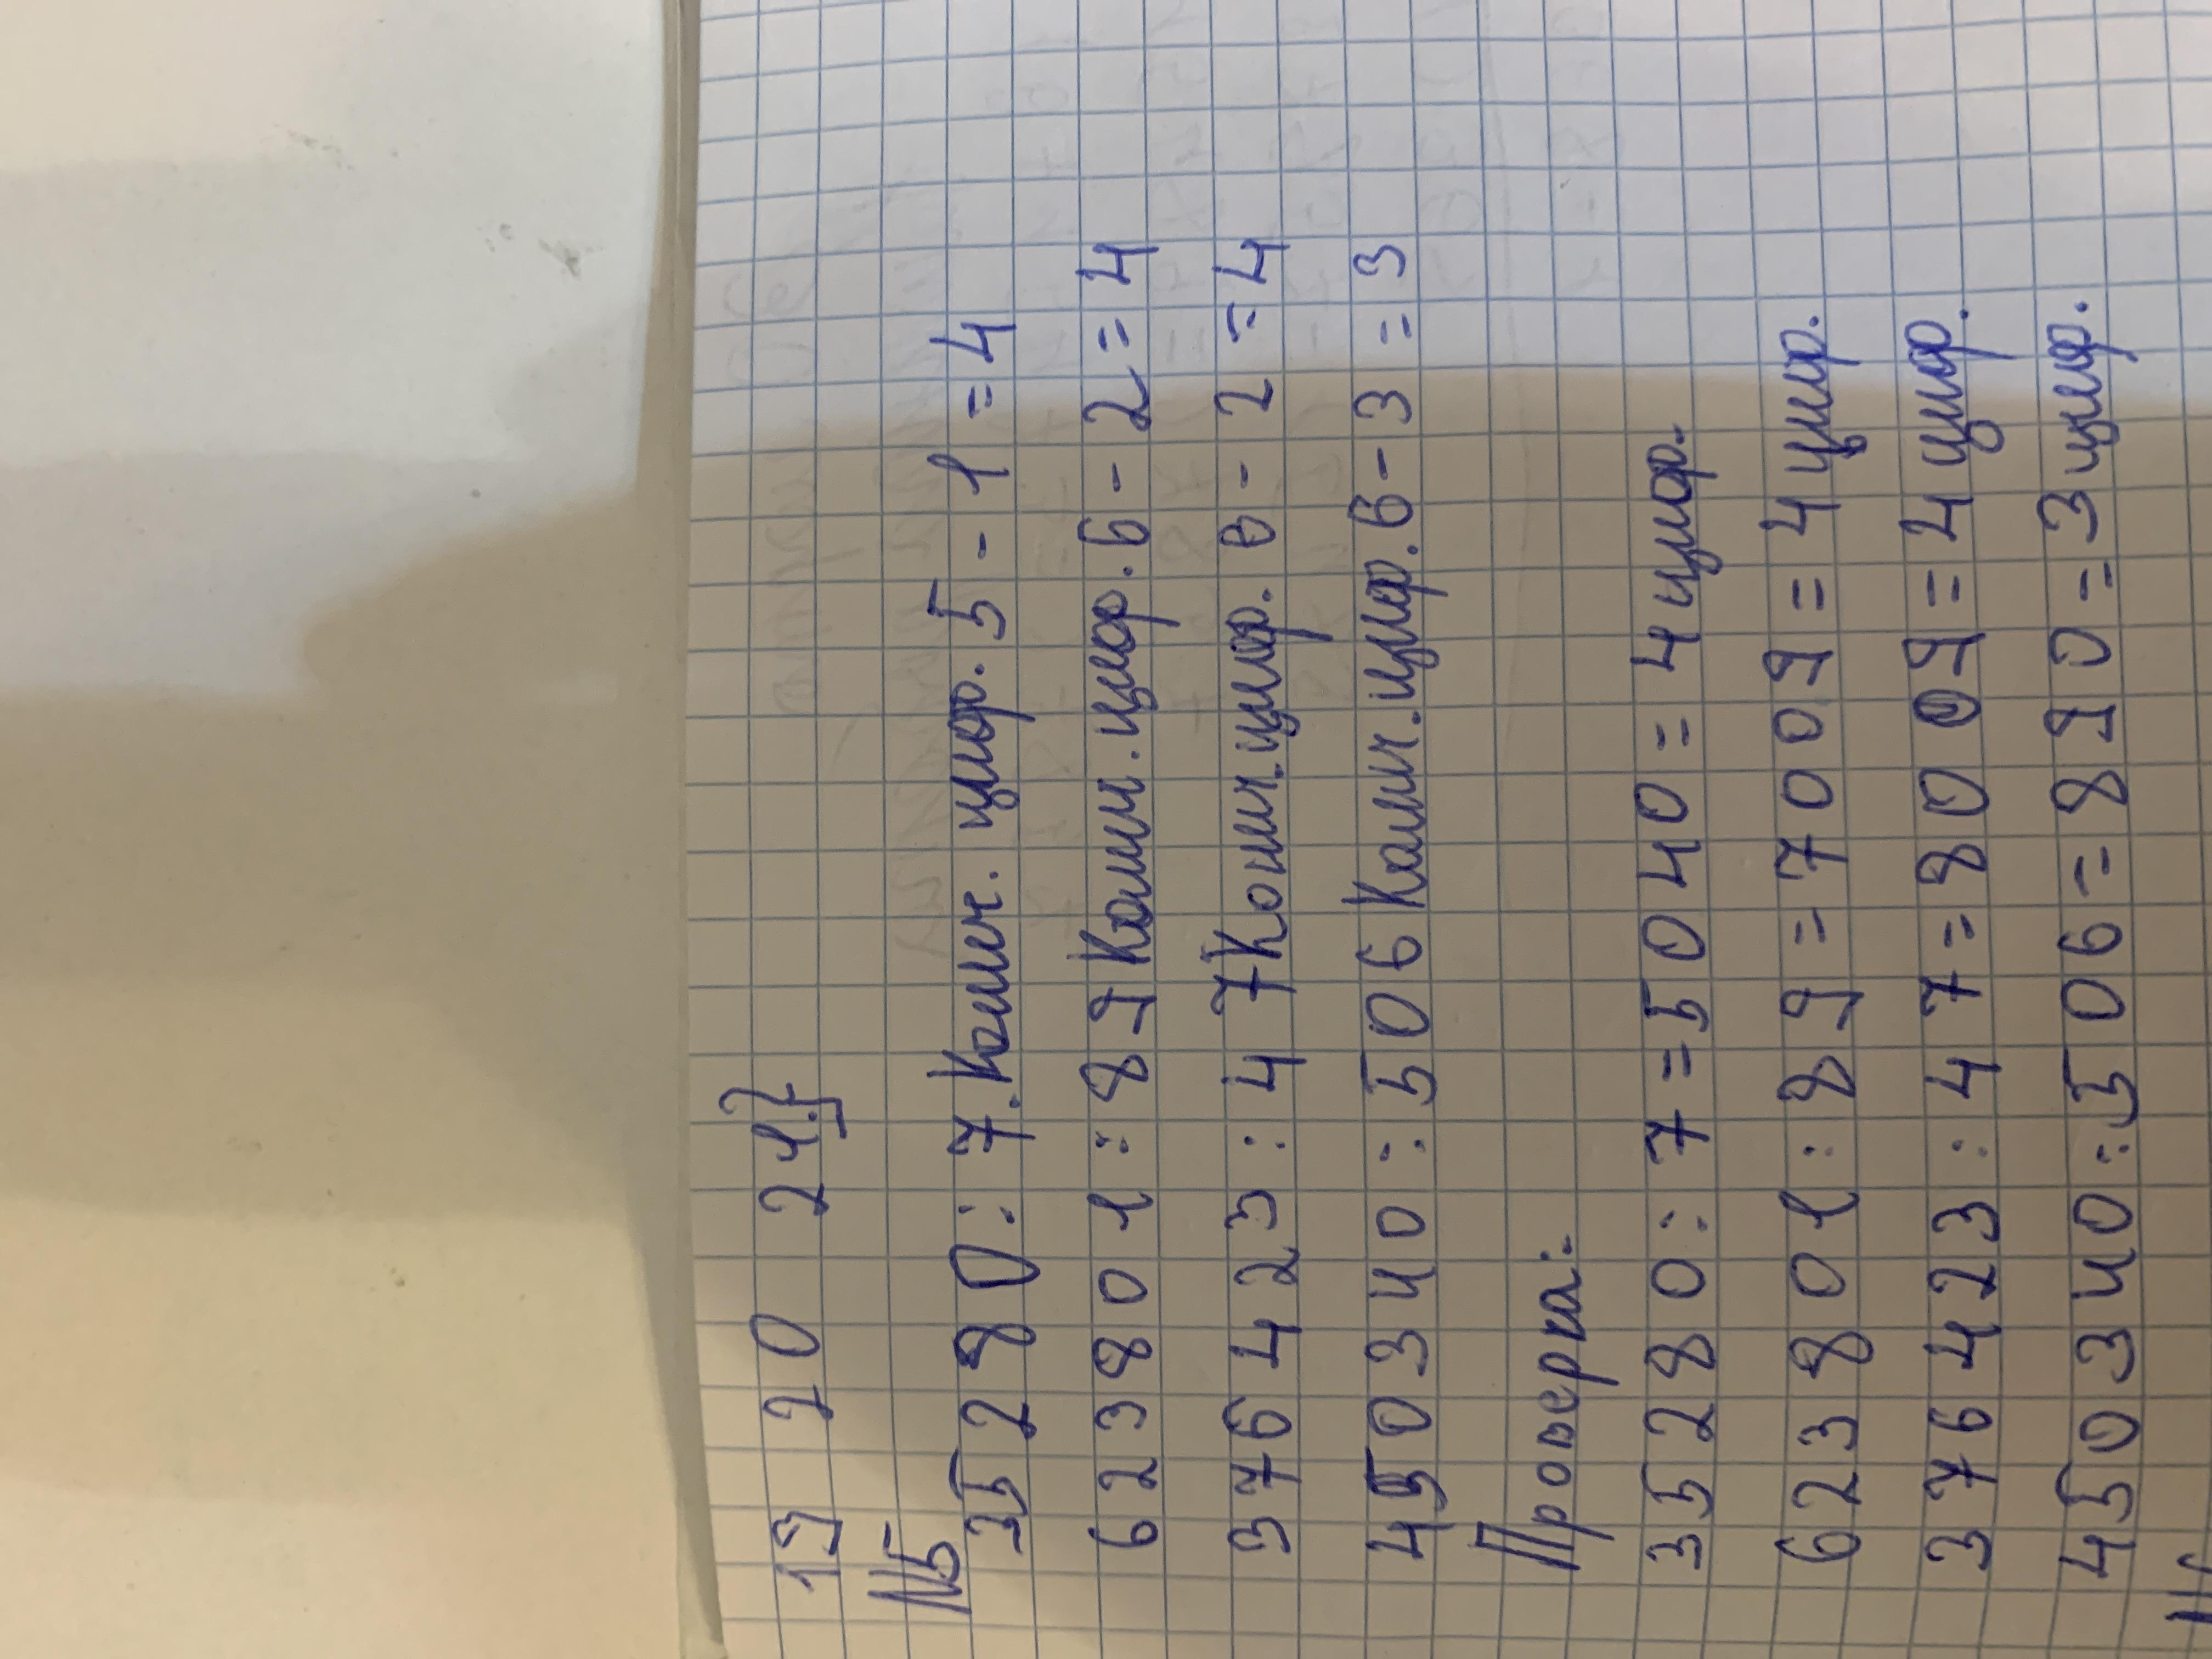 19 20 24}
№5
35280:7. Колич. цифр. 5-1=4
623801:89 Колич. цифр. 6-2=4
376423:47 Колич. цифр. 6-2=4
450340:506 Колич. цифр. 6-3=3
Проверка:
35280:7=5040=4 цифр.
623801:89=7009=4 цифр.
376423:47=8009=4 цифр.
450340:506=890=3 цифр.